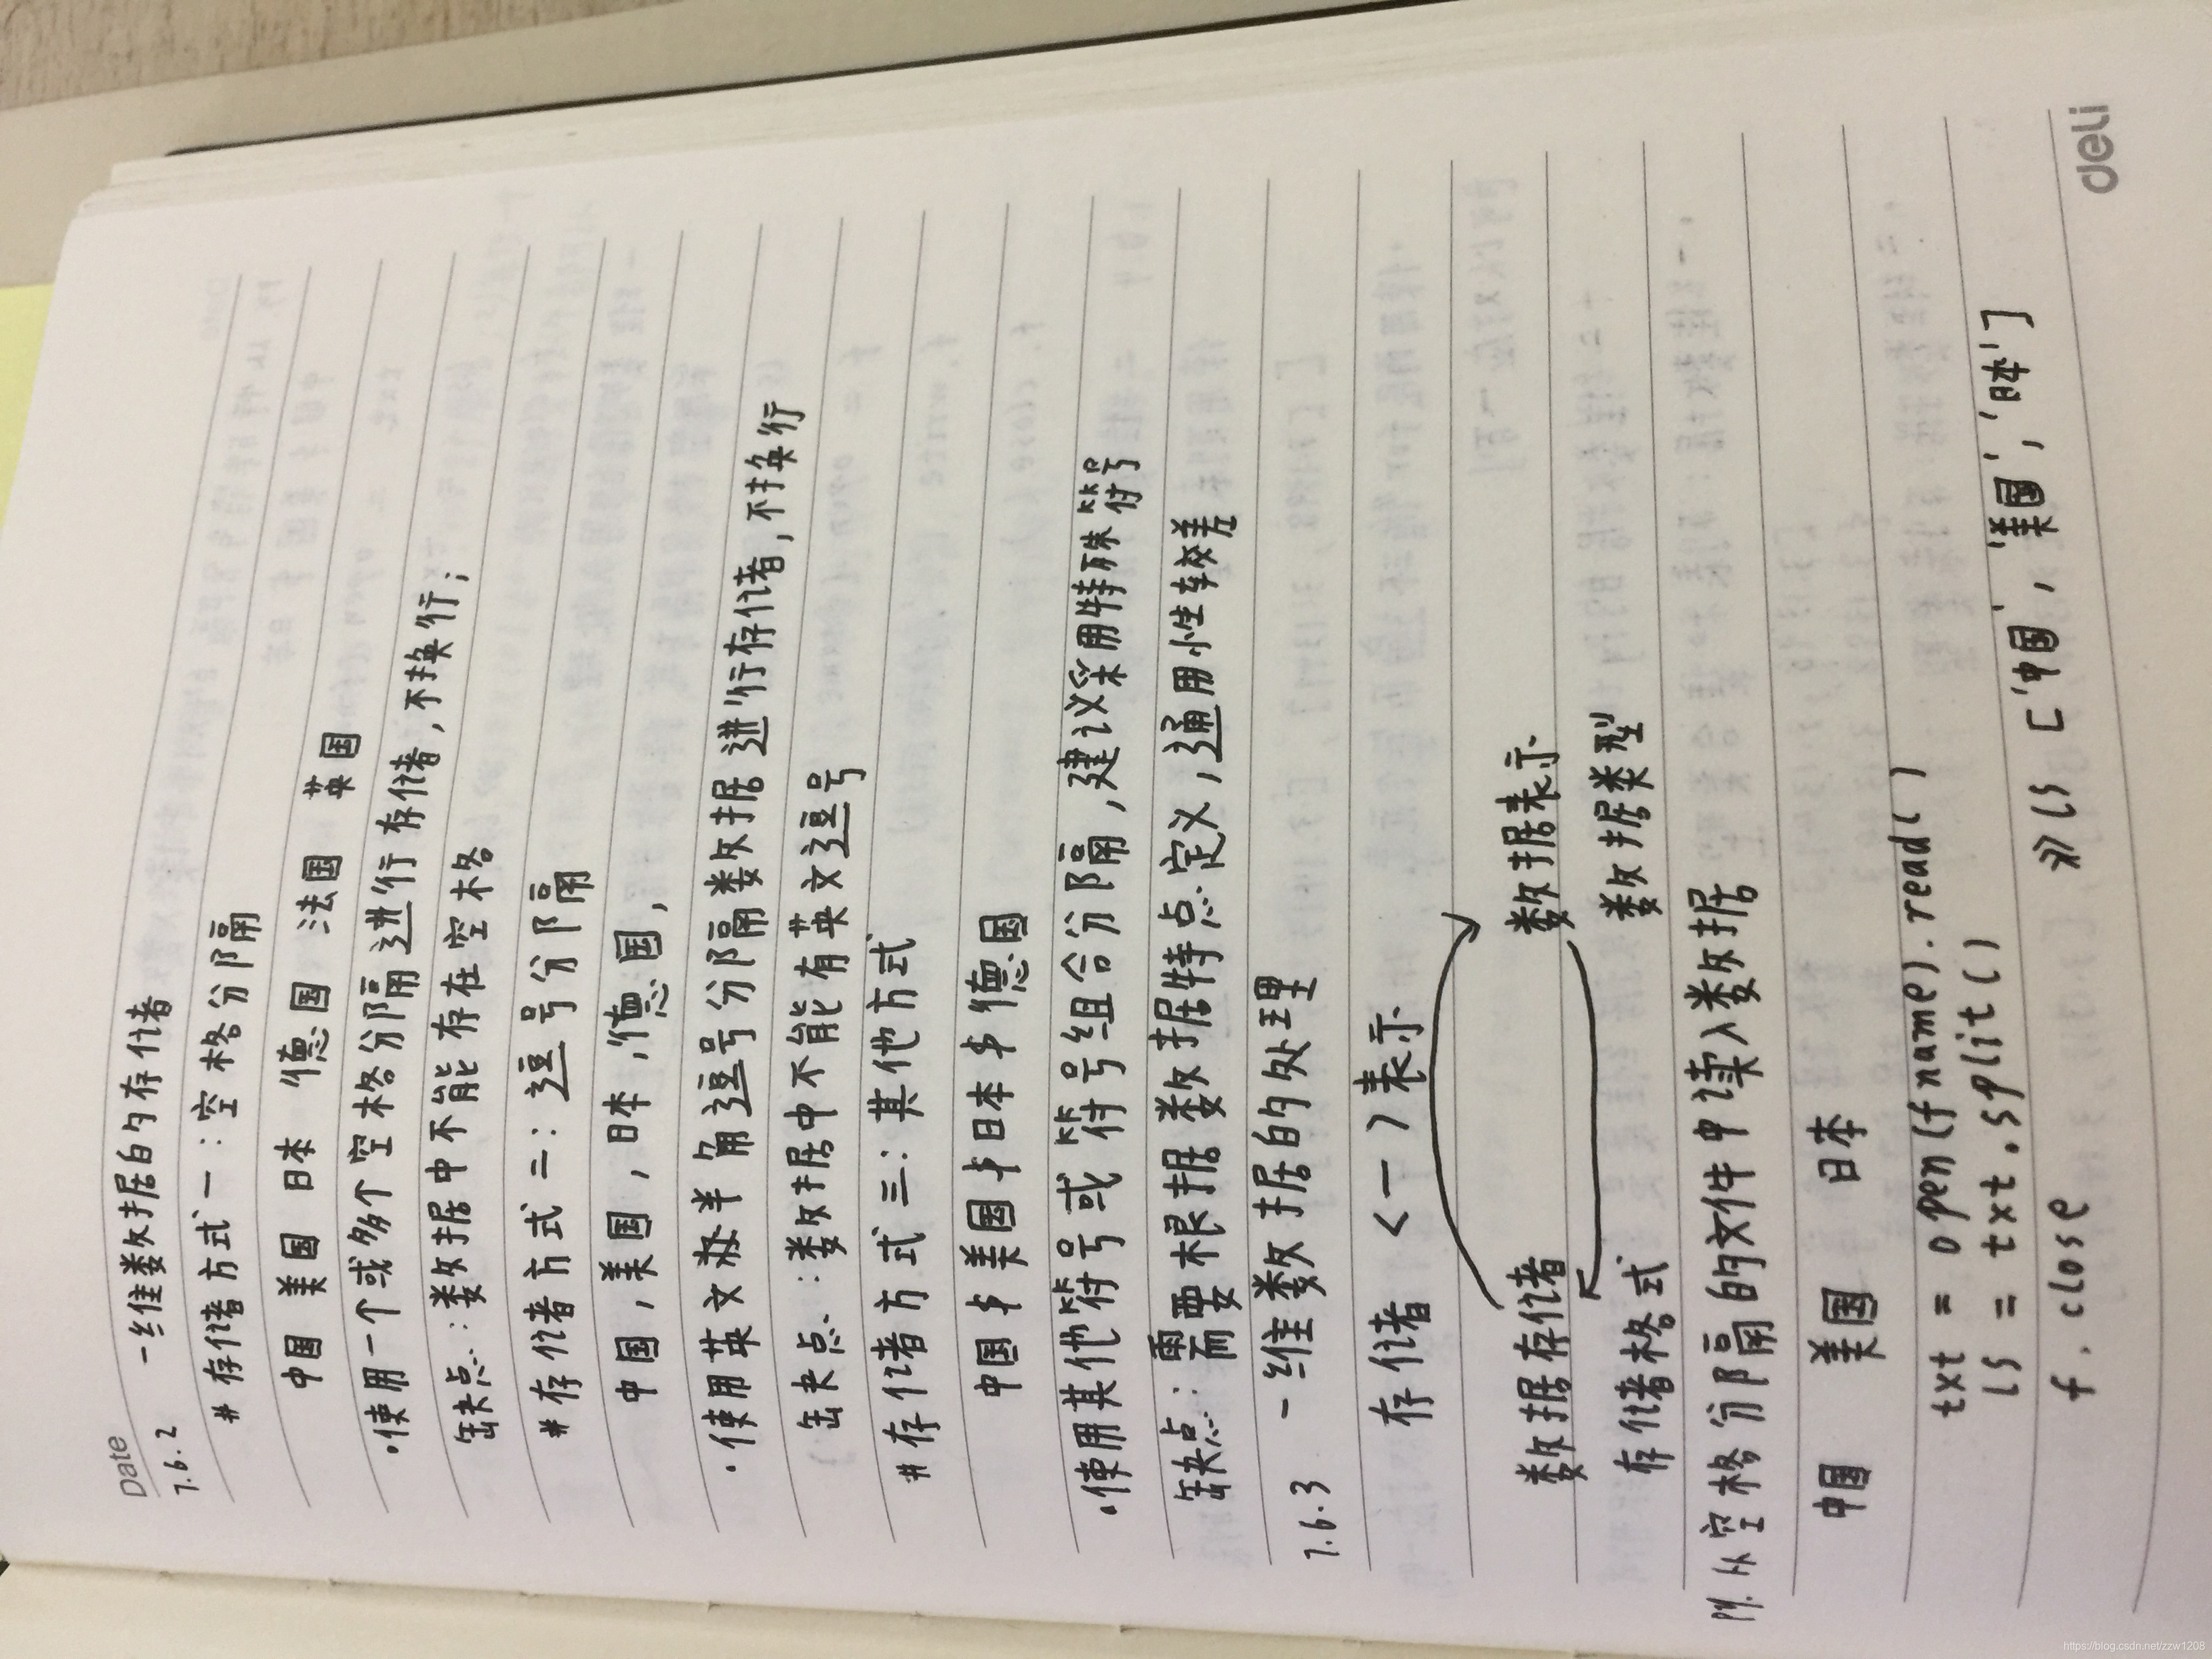 Date
7.6.2 一维数据的存储
# 存储方式一：空格分隔
中国 美国 日本 德国 法国 英国
·使用一个或多个空格分隔进行存储，不换行；
缺点：数据中不能存在空格
# 存储方式二：逗号分隔
中国，美国，日本，德国，
·使用英文半角逗号分隔数据进行存储，不换行
缺点：数据中不能有英文逗号
# 存储方式三：其他方式
中国 $ 美国 $ 日本 $ 德国
·使用其他符号或符号组合分隔，建议采用特殊符号
缺点：需要根据数据特点定义，通用性较差
7.6.3 一维数据的处理
存储 <-> 表示
数据存储 数据表示
存储格式 数据类型
从空格分隔的文件中读入数据
中国 美国 日本
txt = open(fname).read()
ls = txt.split()
f.close >> ls ['中国', '美国', '日本']
deli
https://blog.csdn.net/zzw1208